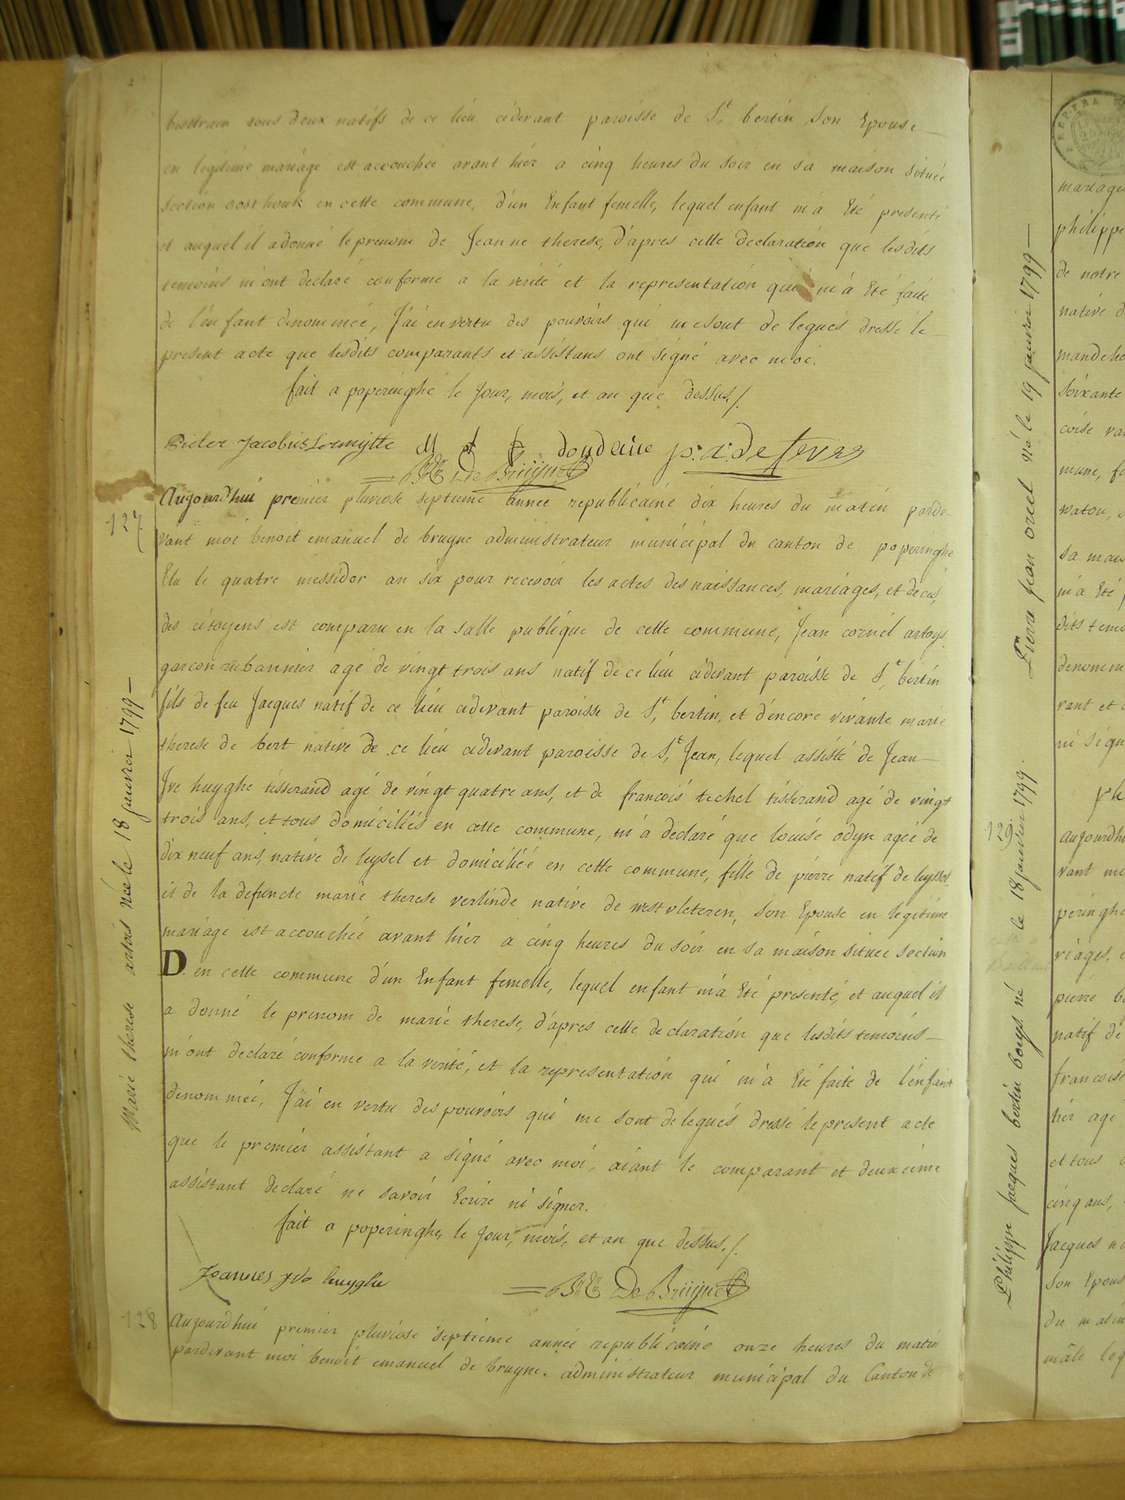 tous deux natifs de ce lieu cidevant paroisse de St bertin son Epouse
en legitime mariage est accouchée avant hier a cinq heures du soir en sa maison située
section oosthouk en cette commune, d'un Enfant femelle, lequel enfant m'a Eté presenté
et auquel il a donné le prenom de Jeanne therese, d'apres cette declaration que lesdits
temoins m'ont declaré conforme a la verité et la representation qui m'a Eté faite
de l'enfant denommée, J'ai en vertu des pouvoirs qui me sont delegués dressé le
present acte que lesdits comparants et assistans ont signé avec moi.
fait a poperinghe le Jour, mois, et an que dessus./.
Pieter Jacobus dondeine
De Bruyne
127
Aujourd'hui premier pluviose septieme année republicaine dix heures du matin parde
vant moi benoit emanuel de bruyne administrateur municipal du canton de poperinghe
Elu le quatre messidor an six pour recevoir les actes des naissances, mariages, et decès,
des citoyens est comparu en la salle publique de cette commune, Jean cornel artoys
garcon agé de vingt trois ans natif de ce lieu cidevant paroisse de St bertin
fils de feu Jacques natif de ce lieu cidevant paroisse de St bertin, et d'encore vivante marie
therese de bert native de ce lieu cidevant paroisse de St Jean, lequel assisté de Jean
Ive huyghe tisserand agé de vingt quatre ans, et de francois techel tisserand agé de vingt
trois ans, et tous domiciliés en cette commune, m'a declaré que louise odyn agée de
dix neuf ans, native de leysel et domiciliée en cette commune, fille de pierre natif de leysel
et de la defuncte marie therese verlinde native de westvleteren, son Epouse en legitime
mariage est accouchée avant hier a cinq heures du soir en sa maison située section
D en cette commune d'un Enfant femelle, lequel enfant m'a Eté presenté, et auquel il
a donné le prenom de marie therese, d'apres cette declaration que lesdits temoins
m'ont declaré conforme a la verité, et la representation qui m'a Eté faite de l'enfant
denommée, J'ai en vertu des pouvoirs qui me sont delegués dressé le present acte
que le premier assistant a signé avec moi, aiant le comparant et deuxieme
assistant declaré ne savoir Ecrire ni signer.
fait a poperinghe, le Jour, mois, et an que dessus./.
Joannes yvo huyghe De Bruyne
128
Aujourd'hui premier pluviose septieme année republicaine onze heures du matin
pardevant moi benoit emanuel de bruyne administrateur municipal du Canton de
Marie therese artois née le 18 janvier 1799
Piera jean cornel né le 19 janvier 1799
129
Philippe Jacques bertin boeys né le 18 janvier 1799.
mariage
philippe
de notre
native d
soixante
mune, f
watou,
sa mais
m'a Eté
dits tem
denomm
vant et
ni sign
aujourdhu
vant mo
peringhe
riages, e
pierre b
natif de
francoise
et tous
cinq ans,
Jacques n
son Epous
du matin
mâle leq